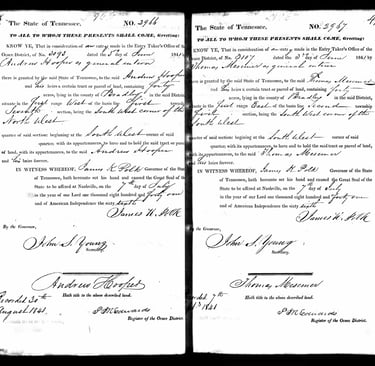 The State of Tennessee, NO. 2966
TO ALL TO WHOM THESE PRESENTS SHALL COME, Greeting:
KNOW YE, That in consideration of an entry made in the Entry Taker's Office of the
Ocoee District, of No. dated the of June 184
Andrew Hooper as general entere
there is granted by the said State of Tennessee, to the said Andrew Hooper
and his heirs a certain tract or parcel of land, containing Forty
acres, lying in the county of Bradley in the said District,
situate in the West of the basis line
being the South West corner of the
North West
quarter of said section: beginning at the South West corner of said
quarter of section, with its appurtenances, to have and to hold the said tract or parcel of
land, with its appurtenances, to the said Andrew Hooper
and his heirs forever.
IN WITNESS WHEREOF, James K. Polk Governor of the
State of Tennessee, hath hereunto set his hand and caused the Great Seal of the
State to be affixed at Nashville, on the 7th day of July
in the year of our Lord one thousand eight hundred and forty one
and of American Independence the sixty sixth
James K. Polk
By the Governor,
John S. Young
Secretary.
Andrew Hooper
Hath title to the above described land.
Recorded 30th
August 1841.
Register of the Ocoee District.
The State of Tennessee, NO. 2967
TO ALL TO WHOM THESE PRESENTS SHALL COME, Greeting:
KNOW YE, That in consideration of an entry made in the Entry Taker's Office of the
District, of No. dated the of June 184
Thomas as general entere
is granted by the said State of Tennessee, to the said Thomas
and his heirs a certain tract or parcel of land, containing forty
lying in the county of Bradley in the said District,
in the East of the basis line
being the South West corner of the
South West
of said section: beginning at the South West corner of said
of section, with its appurtenances, to have and to hold the said tract or parcel of
with its appurtenances, to the said Thomas
his heirs forever.
IN WITNESS WHEREOF, James K. Polk Governor of the
State of Tennessee, hath hereunto set his hand and caused the Great Seal of the
State to be affixed at Nashville, on the 7th day of July
in the year of our Lord one thousand eight hundred and forty one
and of American Independence the sixty sixth
James K. Polk
By the Governor,
John S. Young,
Secretary.
Thomas
Hath title to the above described land.
7th
1841
Register of the Ocoee District.